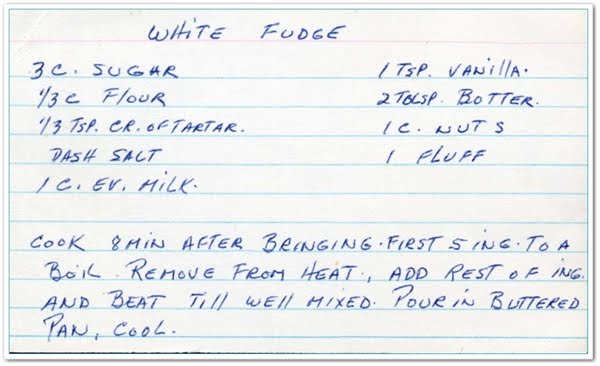 WHITE FUDGE
3 C. SUGAR
1/3 C FLOUR
1/3 TSP. CR. OF TARTAR.
DASH SALT
1 C. EV. MILK.
1 TSP. VANILLA.
2 TBLSP. BOTTER.
1 C. NUTS
1 FLUFF
COOK 8 MIN AFTER BRINGING. FIRST 5 ING. TO A
BOIL. REMOVE FROM HEAT., ADD REST OF ING.
AND BEAT TILL WELL MIXED. POUR IN BUTTERED
PAN, COOL.